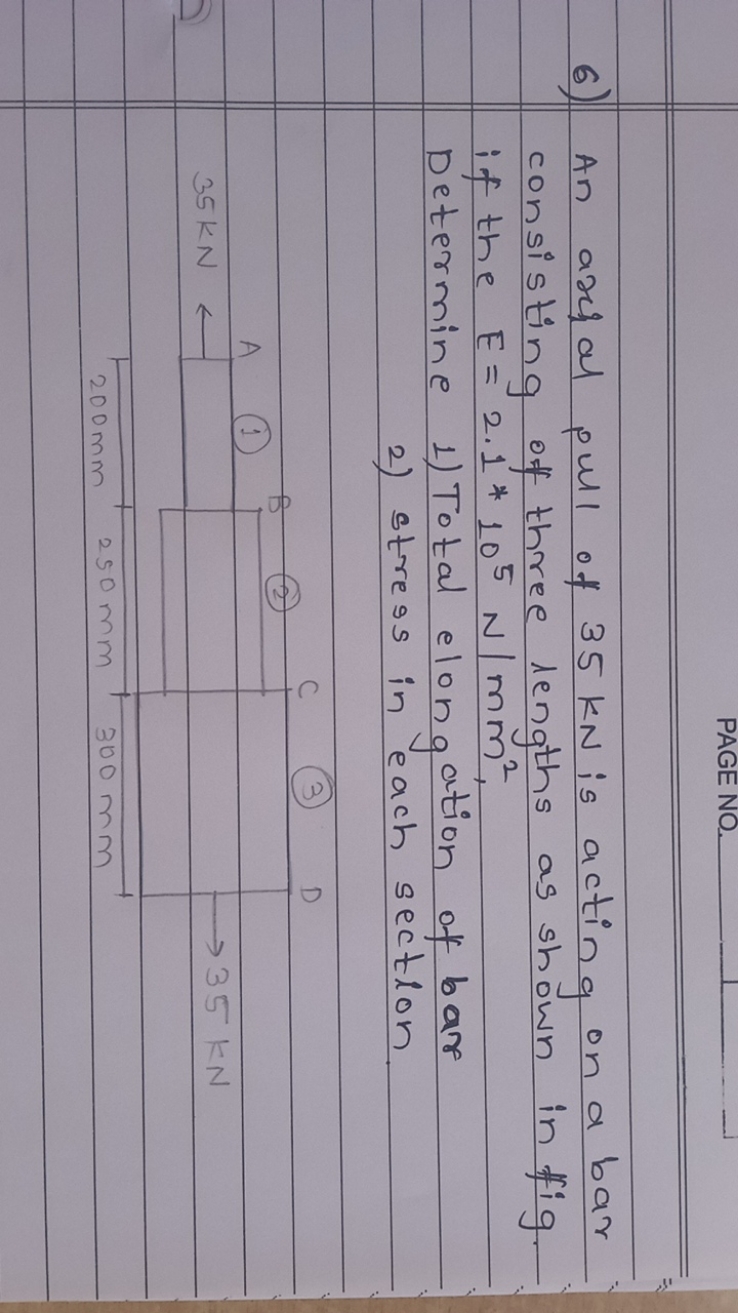 PAGE NO.
6) An axial pull of 35 KN is acting on a bar
consisting of three lengths as shown in fig.
if the E = 2.1 * 10⁵ N/mm²,
Determine 1) Total elongation of bar
2) stress in each section
A ① B ② C ③ D
35KN ← → 35 KN
200mm 250mm 300mm